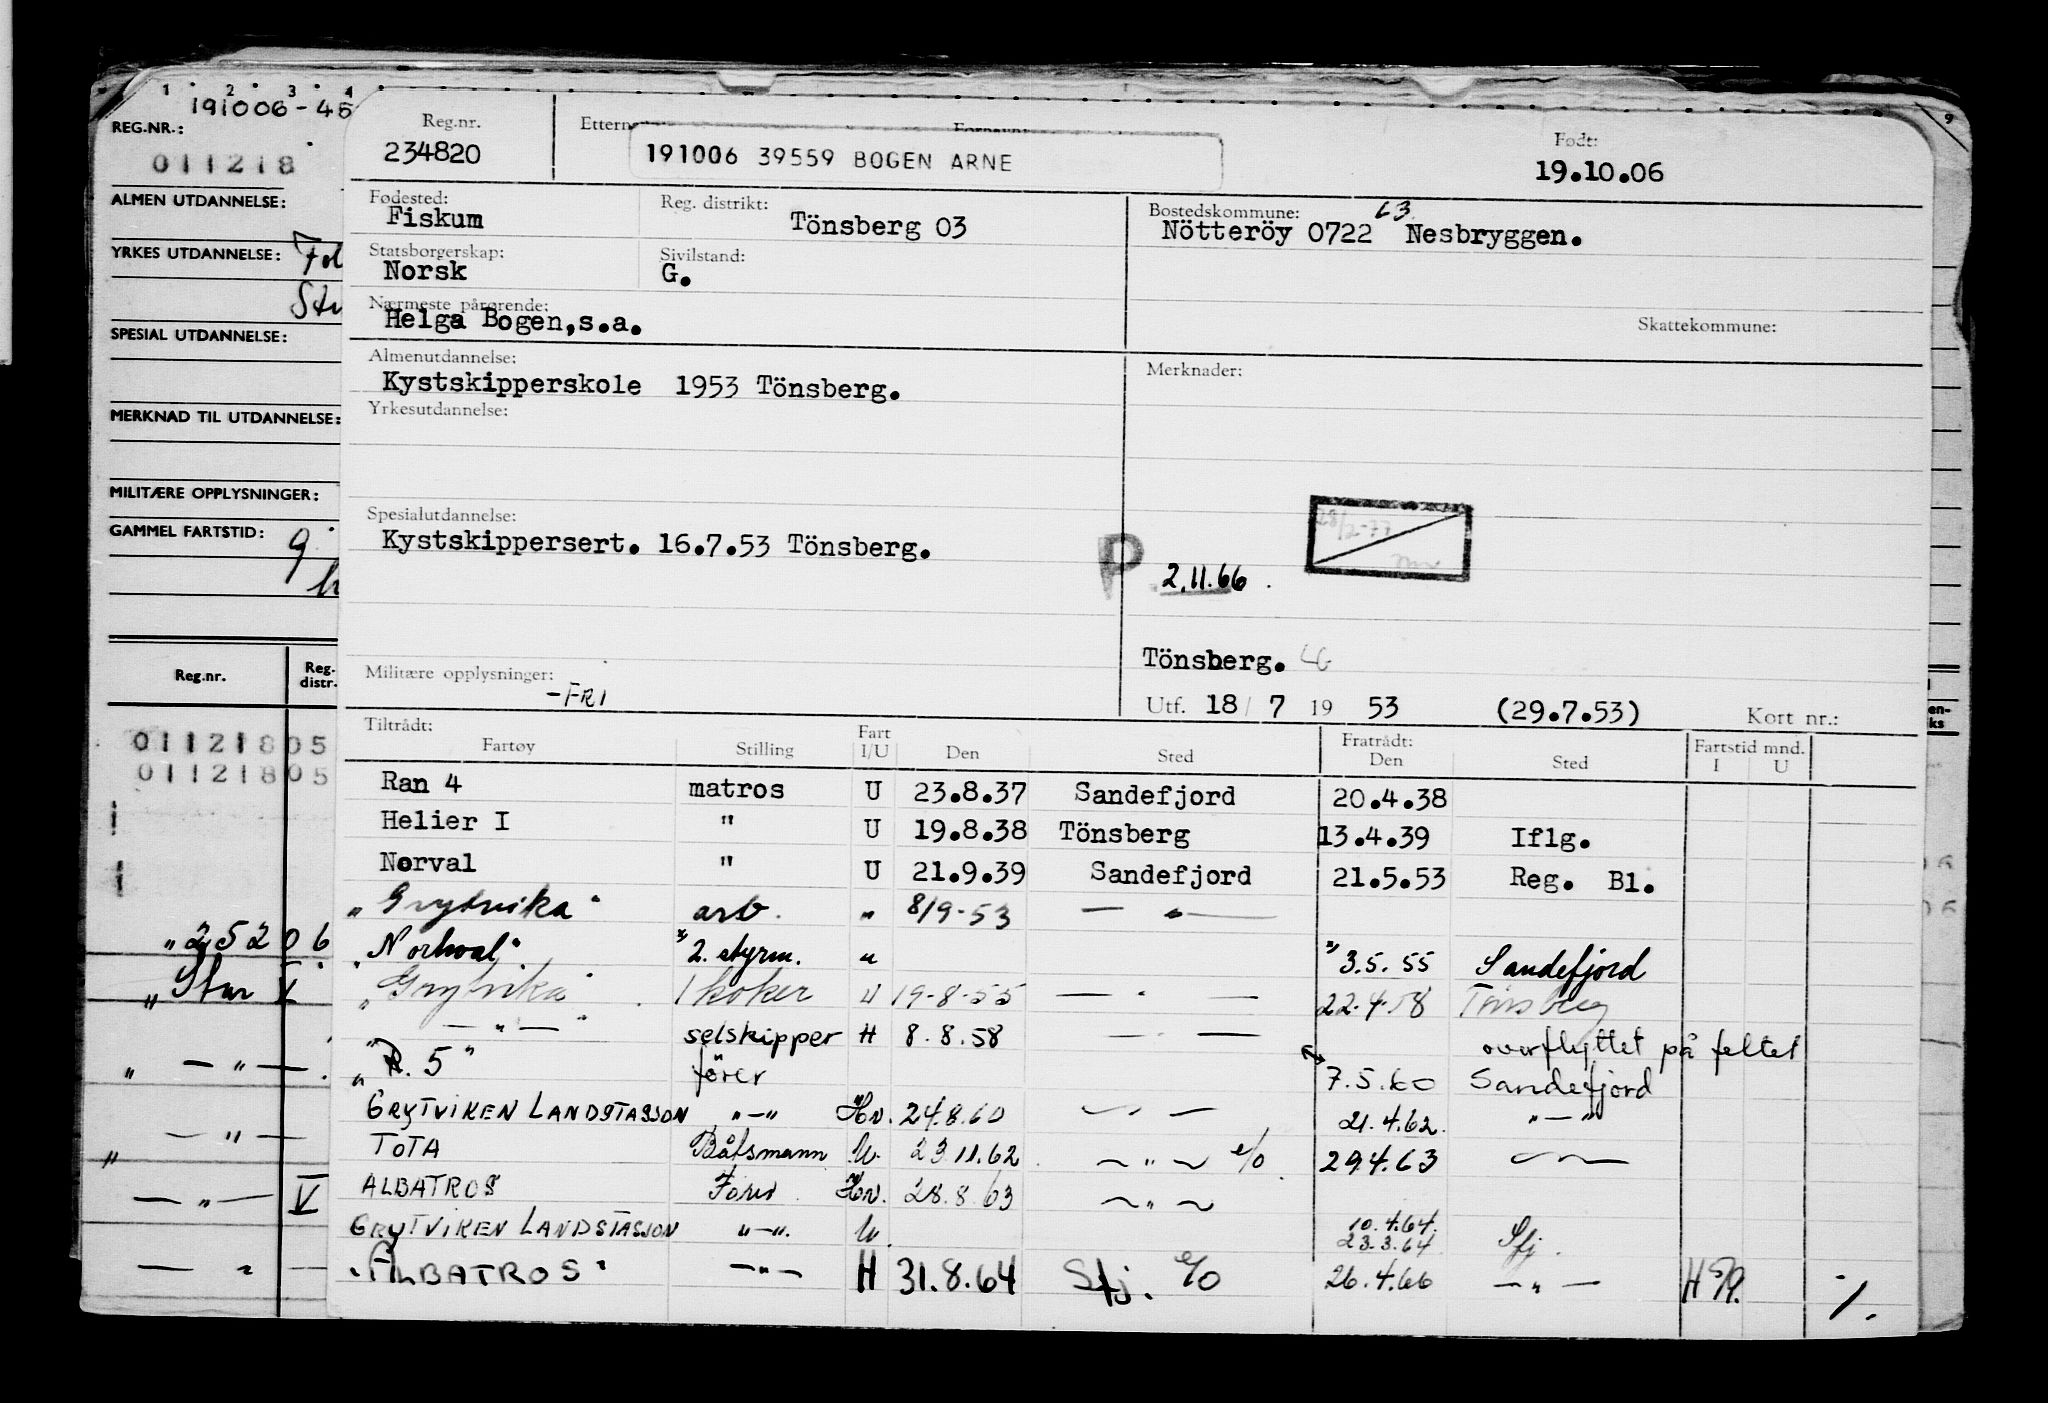 1 2 3 4
191006-45
REG.NR.:
011218
ALMEN UTDANNELSE:
YRKES UTDANNELSE:
SPESIAL UTDANNELSE:
MERKNAD TIL UTDANNELSE:
MILITÆRE OPPLYSNINGER:
GAMMEL FARTSTID:
Reg.nr. Reg. distr.
011218 05
011218 05
"25206
"Star I
" — " —
— " —
— " — V
— " —
Reg.nr.
234820
191006 39559 BOGEN ARNE
Født:
19.10.06
Fødested:
Fiskum
Reg. distrikt:
Tönsberg 03
Bostedskommune: 63
Nötteröy 0722 Nesbryggen.
Statsborgerskap:
Norsk
Sivilstand:
G.
Nærmeste pårørende:
Helga Bogen,s.a.
Skattekommune:
Almenutdannelse:
Kystskipperskole 1953 Tönsberg.
Merknader:
Yrkesutdannelse:
Spesialutdannelse:
Kystskippersert. 16.7.53 Tönsberg.
P
28/2-77
2.11.66.
Tönsberg.
Militære opplysninger:
-FRI
Utf. 18/ 7 19 53 (29.7.53) Kort nr.:
Tiltrådt: Fratrådt: Fartstid mnd.
Fartøy Stilling Fart I/U Den Sted Den Sted I U
Ran 4 matros U 23.8.37 Sandefjord 20.4.38
Helier I " U 19.8.38 Tönsberg 13.4.39 Iflg.
Norval " U 21.9.39 Sandefjord 21.5.53 Reg. Bl.
"Grytvika" arb. " 8/9-53 — " —
"Norhval" 2. styrm. " 3.5.55 Sandefjord
"Grytvika" 1 koker U 19-8-55 — " — 22.4.58 Tönsberg
— " — selskipper H 8.8.58 — " — overflyttet på feltet
"R. 5" förer 7.5.60 Sandefjord
GRYTVIKEN LANDSTASJON "—" Hv. 24.8.60 — — 21.4.62. "—"
TOTA Båtsmann U. 23.11.62 — " — e/o 29.4.63 — —
ALBATROS Förer Hv. 28.8.63 — " —
GRYTVIKEN LANDSTASJON "—". U. 10.4.64. 23.3.64 Sfj.
"ALBATROS" — " — H 31.8.64 Sfj. e/o 26.4.66 — " — H 59. %.